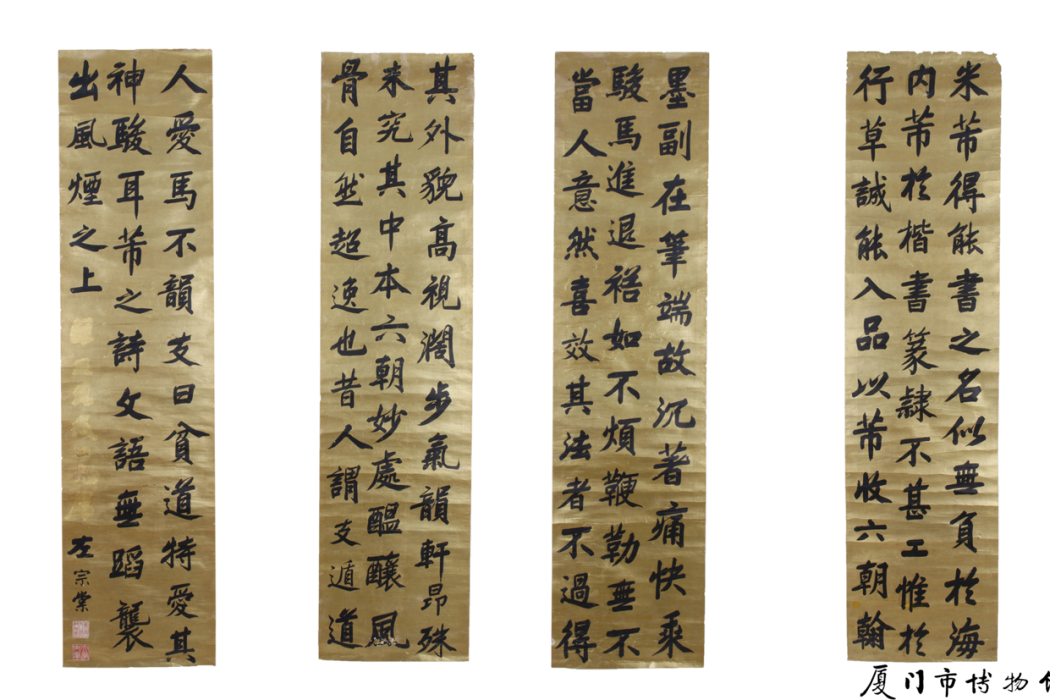 米芾得能書之名似無負於海
内芾於楷書篆隷不甚工惟於
行草誠能入品以芾收六朝翰
墨副在筆端故沉著痛快乘
駿馬進退裕如不煩鞭勒無不
當人意然喜效其法者不過得
其外貌高視濶步氣韻軒昂殊
未究其中本六朝妙處醖釀風
骨自然超逸也昔人謂支遁道
人愛馬不韻支曰貧道特愛其
神駿耳芾之詩文語無蹈襲
出風煙之上
左宗棠
厦门市博物